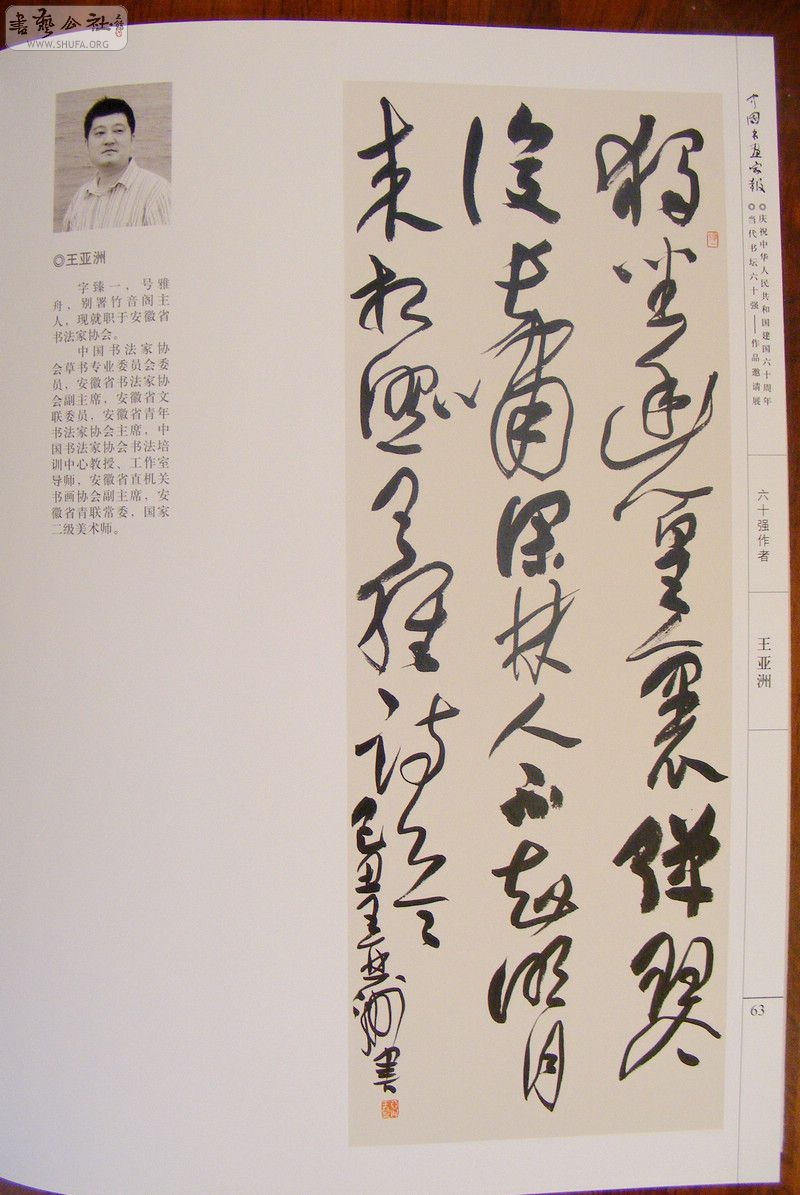 書藝公社
WWW.SHUFA.ORG
◎王亚洲
字臻一,号雅
舟,别署竹音阁主
人,现就职于安徽省
书法家协会。
中国书法家协
会草书专业委员会委
员,安徽省书法家协
会副主席,安徽省文
联委员,安徽省青年
书法家协会主席,中
国书法家协会书法培
训中心教授、工作室
导师,安徽省直机关
书画协会副主席,安
徽省青联常委,国家
二级美术师。
獨坐幽篁裏彈琴
復長嘯深林人不知明月
来相照王維詩
己丑王亚洲書
中国书画家报
◎庆祝中华人民共和国建国六十周年
◎当代书坛六十强——作品邀请展
六十强作者
王亚洲
63